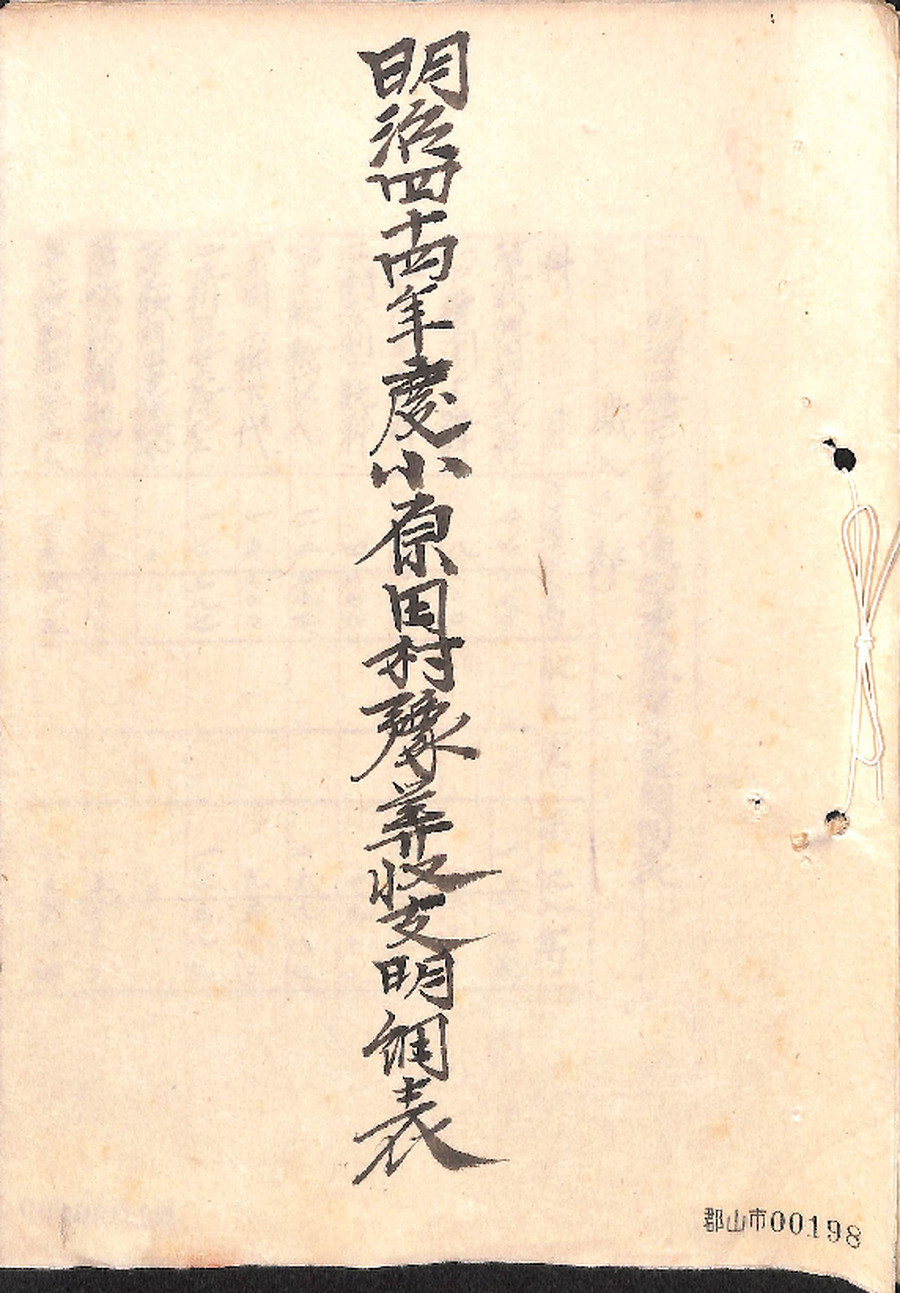 明治四十四年度小原田村豫算収支明細表
郡山市00198